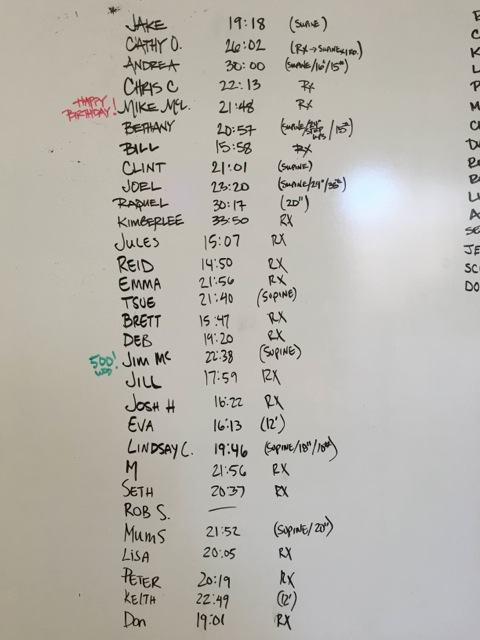 JAKE 19:18 (SUPINE)
CATHY O. 26:02
ANDREA 30:00 (SUPINE/16"/15#)
CHRIS C 22:13 RX
HAPPY BIRTHDAY! MIKE McL. 21:48 RX
BETHANY 20:57
BILL 15:58 RX
CLINT 21:01 (SUPINE)
JOEL 23:20 (SUPINE/24"/35#)
RAQUEL 30:17 (20")
KIMBERLEE 33:50 RX
JULES 15:07 RX
REID 14:50 RX
EMMA 21:56 RX
TSUE 21:40 (SUPINE)
BRETT 15:47 RX
DEB 19:20 RX
500! WOD JIM MC 22:38 (SUPINE)
JILL 17:59 RX
JOSH H 16:22 RX
EVA 16:13 (12')
LINDSAY C. 19:46
M 21:56 RX
SETH 20:37 RX
ROB S. —
MUMS 21:52 (SUPINE/20")
LISA 20:05 RX
PETER 20:19 RX
KEITH 22:49 (12')
Don 19:01 RX